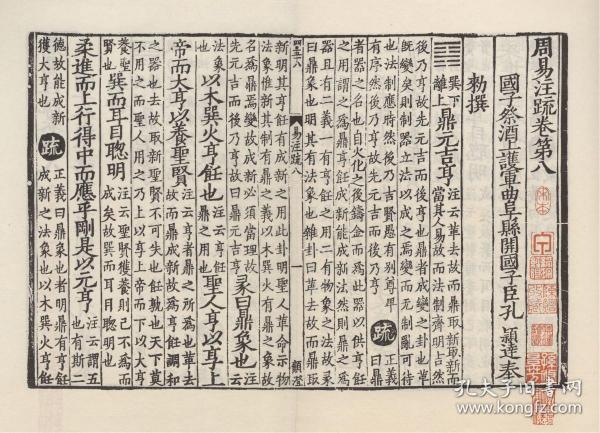 周易注疏卷第八
國子祭酒上護軍曲阜縣開國子臣孔 穎達 奉
勑撰
䷱
巽下
離上
鼎元吉亨
注云革去故而鼎取新取新而
當其人易故而法制齊明吉然
後乃亨故先元吉而後亨也鼎者成變之卦也革
既變矣則制器立法以成之焉變而无制亂可待
也法制應時然後乃吉賢愚有別尊卑
有序然後乃亨故先元吉而後乃亨
疏
正義
曰鼎
者器之名也自火化之後鑄金而爲此器以供亨飪
之用謂之爲鼎亨飪成新能成新法然則鼎之爲
器且有二義一有亨飪之用二有物象之法故彖
曰鼎象也明其有法象也雜卦曰革去故而鼎取
易注疏八
一
顧澄
新明其亨飪有成新之用此卦明聖人革命示物
法象惟新其制有鼎之義以木巽火有鼎之象故
名爲鼎焉變故成新必須當理故
先元吉而後乃亨故曰鼎元吉亨也
彖曰鼎象也
注云
法象
也
以木巽火亨飪也
注云亨飪
鼎之用也
聖人亨以享上
帝而大亨以養聖賢
注云亨者鼎之所爲也革去
故而鼎成新故爲亨飪調和
之器也去故取新聖賢不可失也飪孰也天下莫
不用之而聖人用之乃上以享上帝而下以大亨
養聖
賢也
巽而耳目聰明
注云聖賢獲養則己不爲而
成矣故巽而耳目聰明也
柔進而上行得中而應乎剛是以元亨
注云謂五
也有斯二
德故能成新
獲大亨也
疏
正義曰鼎象也者明鼎有亨飪
成新之法象也以木巽火亨飪
孔夫子旧书网
www.kongfz.com